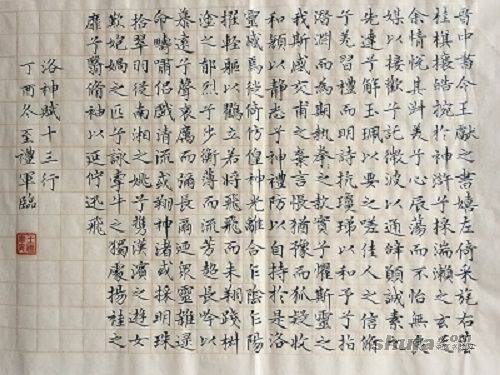 晉中書令王獻之書嬉左倚采旄右蔭
桂旗攘皓腕於神滸兮採湍瀨之玄芝
余情悅其淑美兮心蕩而不怡無良
媒以接歡兮託微波以通辭願誠素之
先達兮解玉珮以要之嗟佳人之信脩
兮羌習禮而明詩抗瓊珶以和予兮指
潛淵而為期執拳之款實兮懼斯靈之
我斯感交甫之棄言悵猶豫而狐疑收
和顏以靜志兮申禮防以自持於是洛
靈感焉徙倚仿偟神光離合乍陰乍陽
擢輕軀以鶴立若將飛而未翔踐椒
塗之郁烈兮步衡薄而流芳超長吟以
慕遠兮聲哀厲而彌長爾迺眾靈雜遝
命疇嘯侶或戲清流或翔神渚或採明珠
拾翠羽從南湘之姚兮攜漢濱之遊女
歎匏媧之匹兮詠牽牛之獨處揚袿之
靡兮翳脩袖以延佇迅飛
洛神賦十三行
丁酉冬至禮軍臨